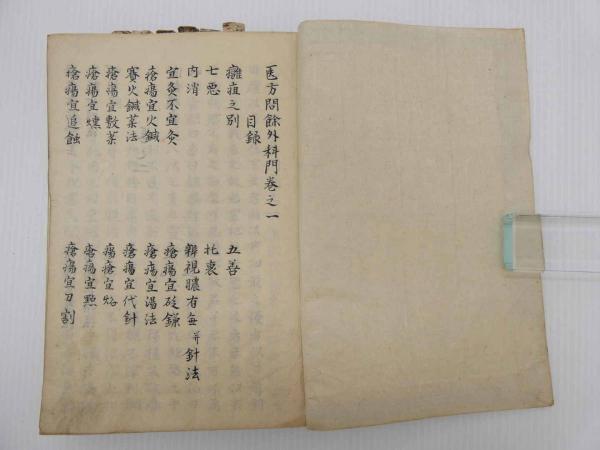 医方問餘外科門巻之一
目録
癰疽之別 五善
七悪 托裏
内消 辨視膿有無并針法
宜灸不宜灸 瘡瘍宜砭鎌
瘡瘍宜火鍼 瘡瘍宜湯法
賽火鍼薬法 瘡瘍宜代針
瘡瘍宜敷薬 瘍瘡宜烙
瘡瘍宜熏 瘡瘍宜點
瘡瘍宜追蝕 瘡瘍宜刀割